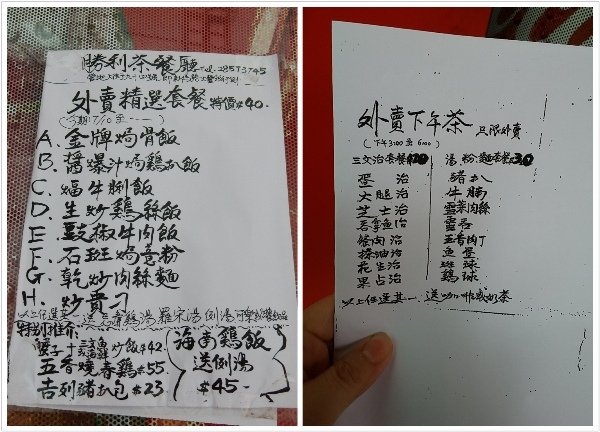 勝利茶餐廳
外賣精選套餐 特價$40.
A. 金牌焗骨飯
B. 醬爆汁焗鷄扒飯
C. 牛脷飯
D. 生炒鷄絲飯
E. 豉椒牛肉飯
F. 石斑焗意粉
G. 乾炒肉絲麵
H. 炒貴刁
以上任選其一 送 鷄湯 羅宋湯 例湯
特別推介
炒飯 $42
五香燒春鷄 $55
吉列豬扒包 $23
海南鷄飯
送例湯
$45-
外賣下午茶 只限外賣
(下午3:00至6:00)
三文治套餐
蛋治
火腿治
芝士治
吞拿魚治
餐肉治
油治
花生治
果占治
湯粉麵套餐
豬扒
牛腩
雪菜肉絲
五香肉丁
魚蛋
斑球
鷄球
以上任選其一 送咖啡或奶茶